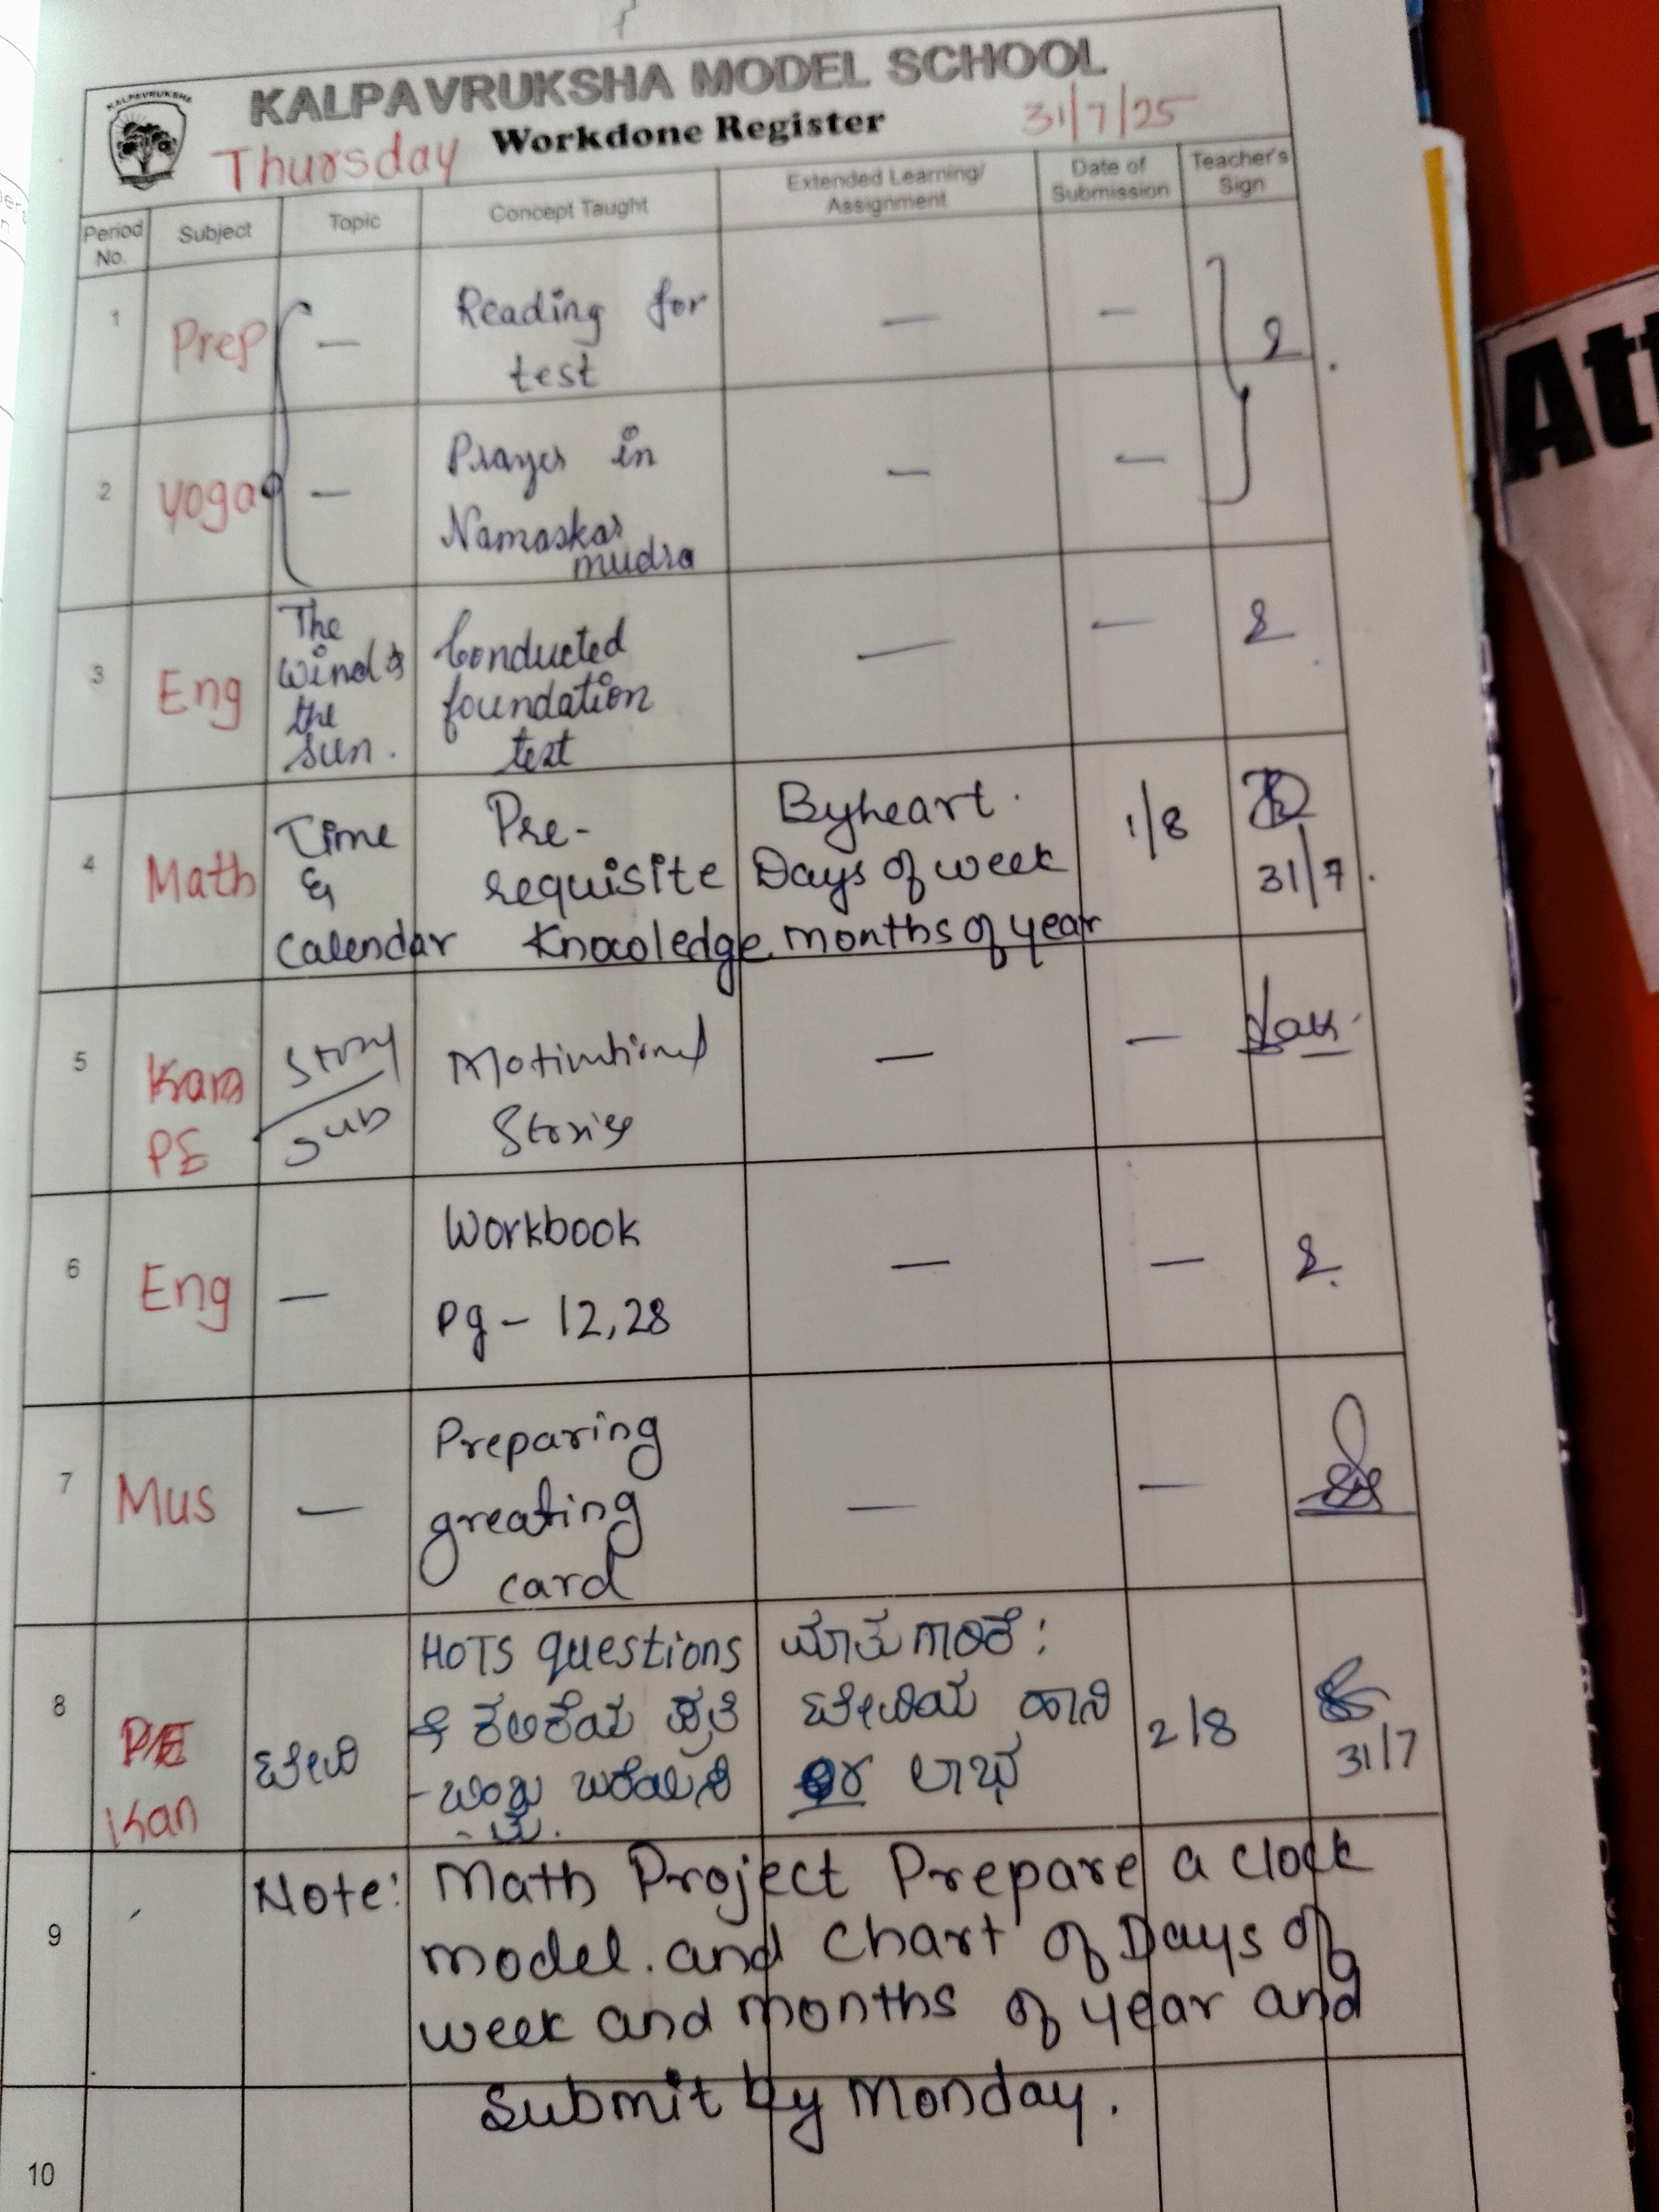 KALPAVRUKSHA
KALPAVRUKSHA MODEL SCHOOL
Thursday Workdone Register 31/7/25
Period No. Subject Topic Concept Taught Extended Learning/ Assignment Date of Submission Teacher's Sign
1 Prep — Reading for — —
test
2 yoga — Prayer in — —
Namaskar
mudra
3 Eng The Conducted — —
wind & foundation
the test
sun.
4 Math Time Pre- Byheart. 1/8
& requisite Days of week 31/7.
Calendar Knowledge months of year
5 Kan Story Motivational — —
PE Sub Stories
6 Eng — Workbook — —
Pg - 12,28
7 Mus — Preparing — —
greating
card
8 HOTS questions ಮಾತುಗಾರಿಕೆ:
PE ಬೇಲಿ & ಕಲಿಕೆಯ ಪ್ರತಿ ಬೇಲಿಯ ಹಾನಿ 2/8
Kan ಲಾಭ 31/7
9 Note: Math Project Prepare a clock
model. and chart of Days of
week and months of year and
Submit by Monday.
10
Att